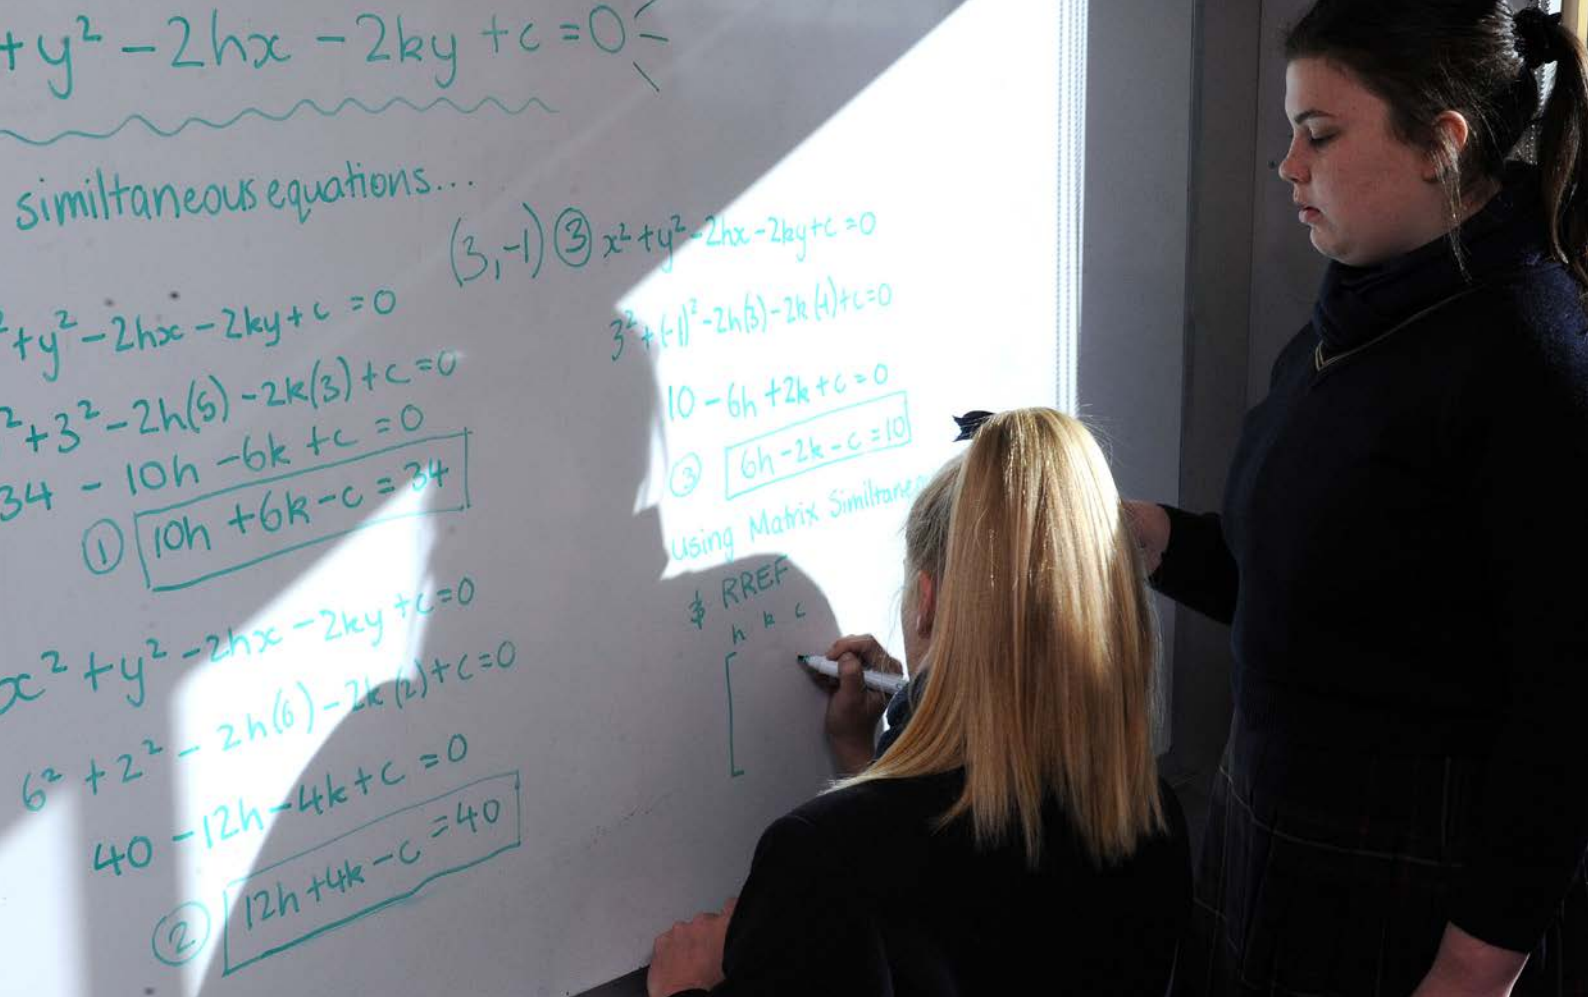 +y² - 2hx - 2ky + c = 0
similtaneous equations...
²+y² - 2hx - 2ky + c = 0
²+3² - 2h(5) - 2k(3) + c = 0
34 - 10h - 6k + c = 0
① 10h + 6k - c = 34
x² + y² - 2hx - 2ky + c = 0
6² + 2² - 2h(6) - 2k(2) + c = 0
40 - 12h - 4k + c = 0
② 12h + 4k - c = 40
(3,-1) ③ x² + y² - 2hx - 2ky + c = 0
3² + (-1)² - 2h(3) - 2k(-1) + c = 0
10 - 6h + 2k + c = 0
③ 6h - 2k - c = 10
using Matrix Similtane
& RREF
h k c
[